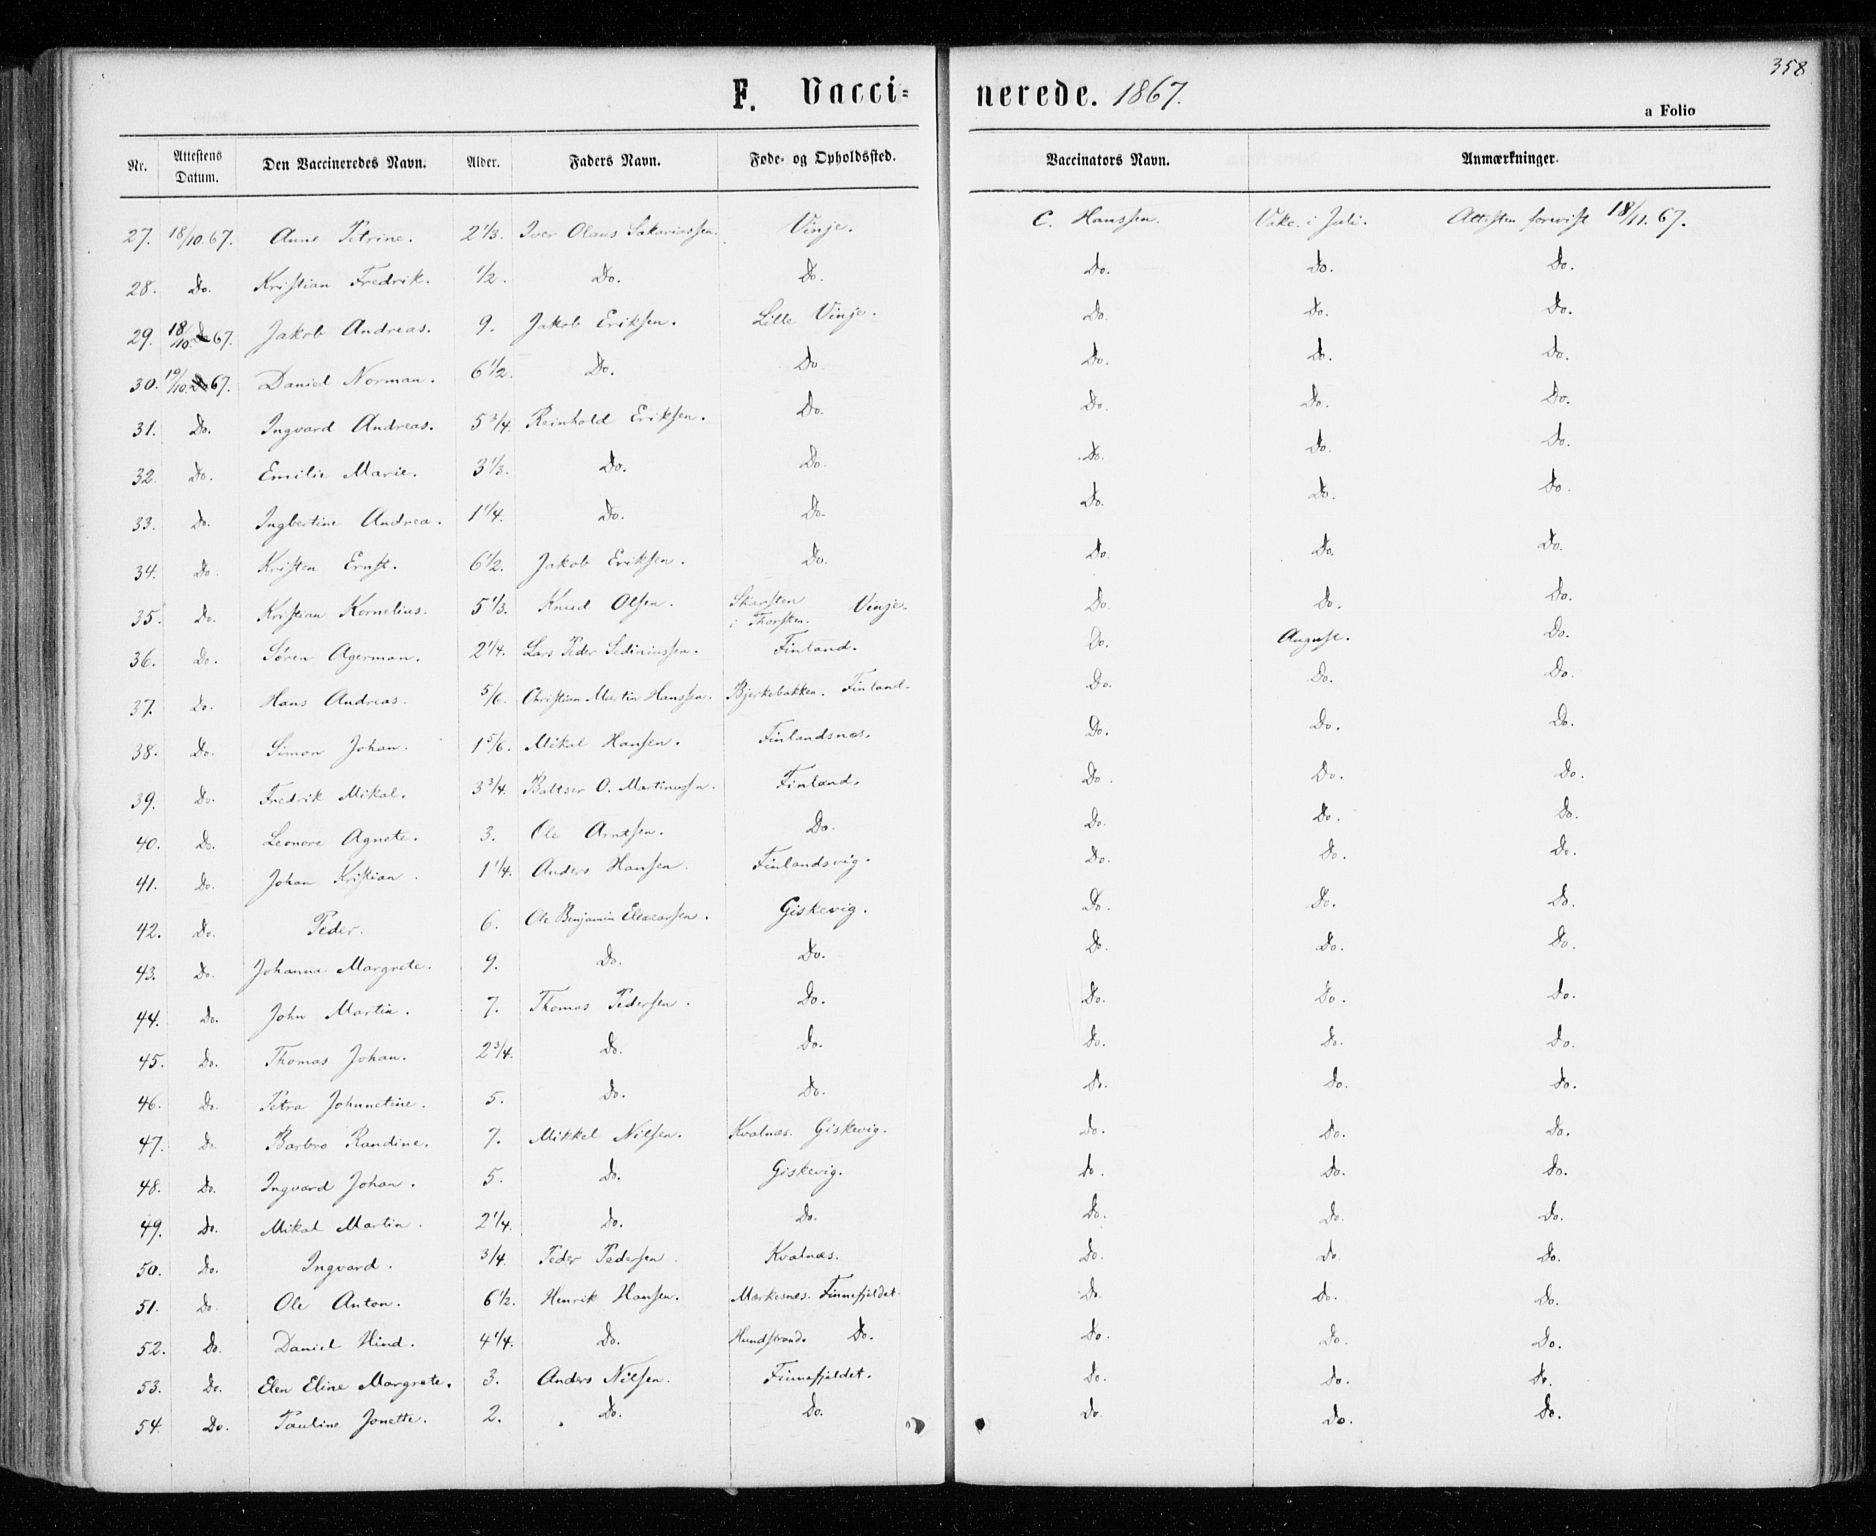 358
F. Vacci= nerede. 1867.
a Folio
Nr. Attestens Datum. Den Vaccineredes Navn. Alder. Faders Navn. Føde- og Opholdssted. Vaccinators Navn. Anmærkninger.
27. 18/10.67. Anne Petrine. 2 1/3. Iver Olaus Sakariassen. Vinje. C. Hanssen. Vakc. i Juli. Attesten forevist 18/11.67.
28. Do. Kristian Fredrik. 1/2. Do. Do. Do. Do. Do.
29. 18/10. 67. Jakob Andreas. 9. Jakob Eriksen. Lille Vinje. Do. Do. Do.
30. 19/10. 67. Daniel Norman. 6 1/2. Do. Do. Do. Do. Do.
31. Do. Ingvard Andreas. 5 3/4. Reinhold Eriksen. Do. Do. Do. Do.
32. Do. Emilie Marie. 3 1/3. Do. Do. Do. Do. Do.
33. Do. Ingbertine Andrea. 1 1/4. Do. Do. Do. Do. Do.
34. Do. Kristen Ernst. 6 1/2. Jakob Eriksen. Do. Do. Do. Do.
35. Do. Kristian Kornelius. 5 1/3. Knud Olsen. Skarsten i Thorsten. Vinje. Do. Do. Do.
36. Do. Søren Agerman. 2 1/4. Lars Peder Sediniussen. Finland. Do. August. Do.
37. Do. Hans Andreas. 5/6. Christian Martin Hanssen. Bjerkebakken. Finland. Do. Do. Do.
38. Do. Simon Johan. 1 5/6. Mikal Hansen. Finlandsnæs. Do. Do. Do.
39. Do. Fredrik Mikal. 3 3/4. Baltser O. Martinussen. Finland. Do. Do. Do.
40. Do. Leonore Agnete. 3. Ole Arntsen. Do. Do. Do. Do.
41. Do. Johan Kristian. 1 1/4. Anders Hansen. Finlandsvig. Do. Do. Do.
42. Do. Peder. 6. Ole Benjamin Eleasarsen. Giskevig. Do. Do. Do.
43. Do. Johanna Margrete. 9. Do. Do. Do. Do. Do.
44. Do. John Martin. 7. Thomas Pedersen. Do. Do. Do. Do.
45. Do. Thomas Johan. 2 3/4. Do. Do. Do. Do. Do.
46. Do. Petra Johnnetine. 5. Do. Do. Do. Do. Do.
47. Do. Barbro Randine. 7. Mikkel Nilsen. Kvalnæs. Giskevig. Do. Do. Do.
48. Do. Ingvard Johan. 5. Do. Giskevig. Do. Do. Do.
49. Do. Mikal Martin. 2 1/4. Do. Do. Do. Do. Do.
50. Do. Ingvard. 3/4. Peder Pedersen. Kvalnæs. Do. Do. Do.
51. Do. Ole Anton. 6 1/2. Henrik Hansen. Mærkesnæs. Finnefjeldet. Do. Do. Do.
52. Do. Daniel Hind. 4 1/4. Do. Hundstrand. Do. Do. Do. Do.
53. Do. Elen Eline Margrete. 3. Anders Nilsen. Finnefjeldet. Do. Do. Do.
54. Do. Pauline Jonette. 2. Do. Do. Do. Do. Do.